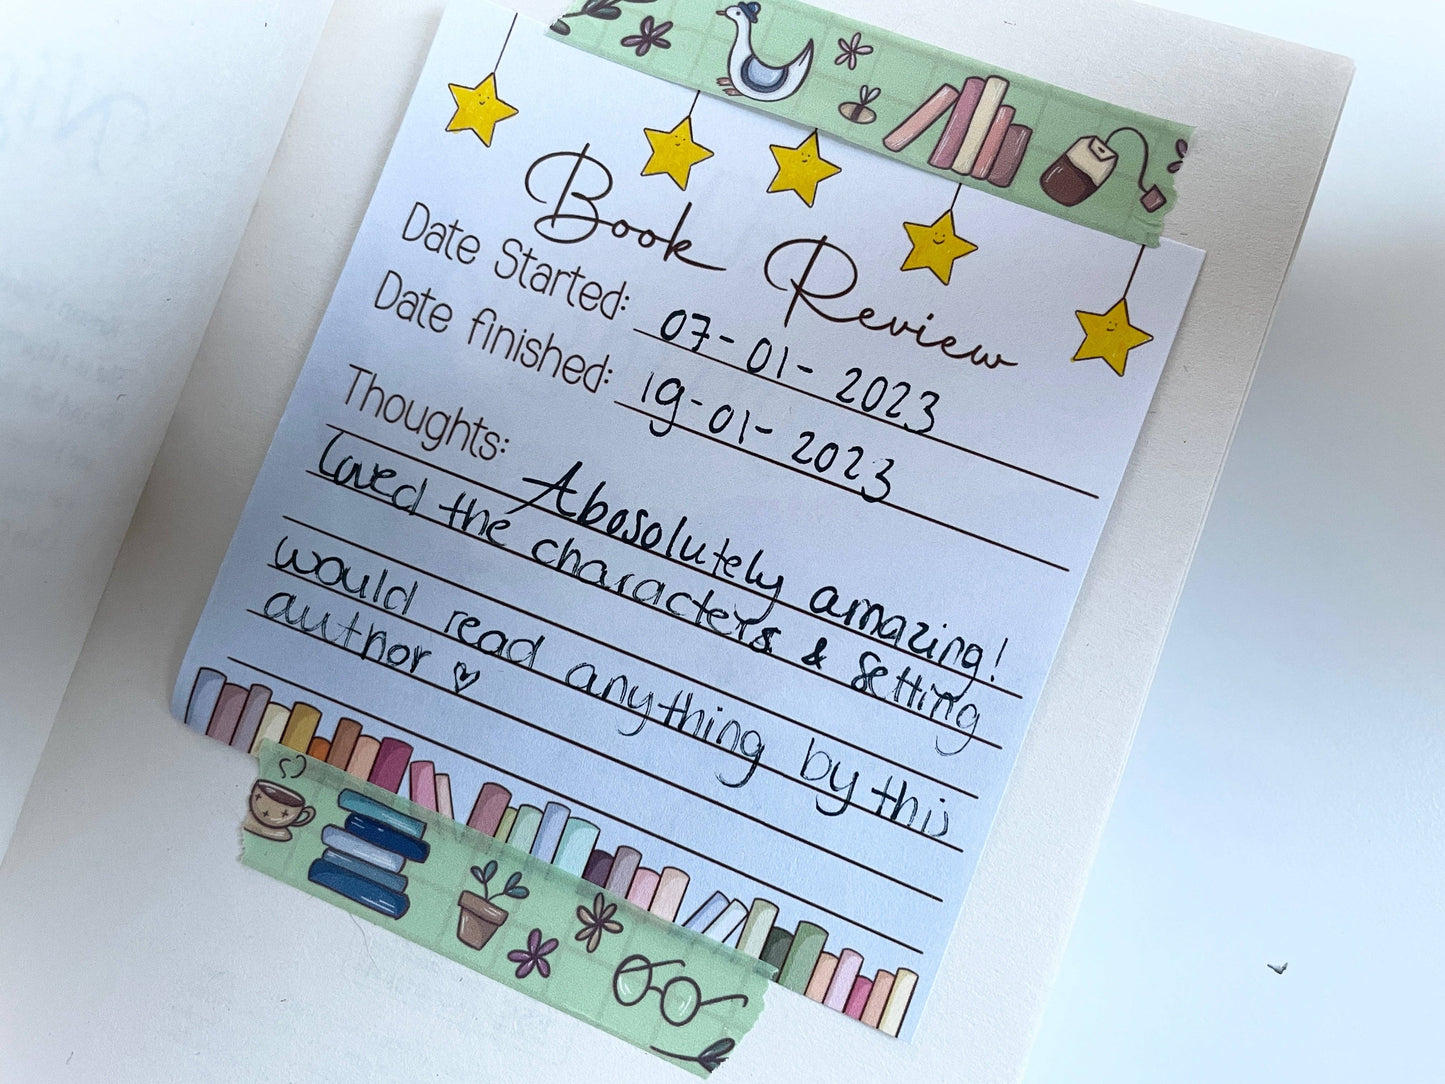 Book Review
Date Started: 07-01-2023
Date finished: 19-01-2023
Thoughts: Abosolutely amazing!
Loved the characters & setting
would read anything by this
author ♡